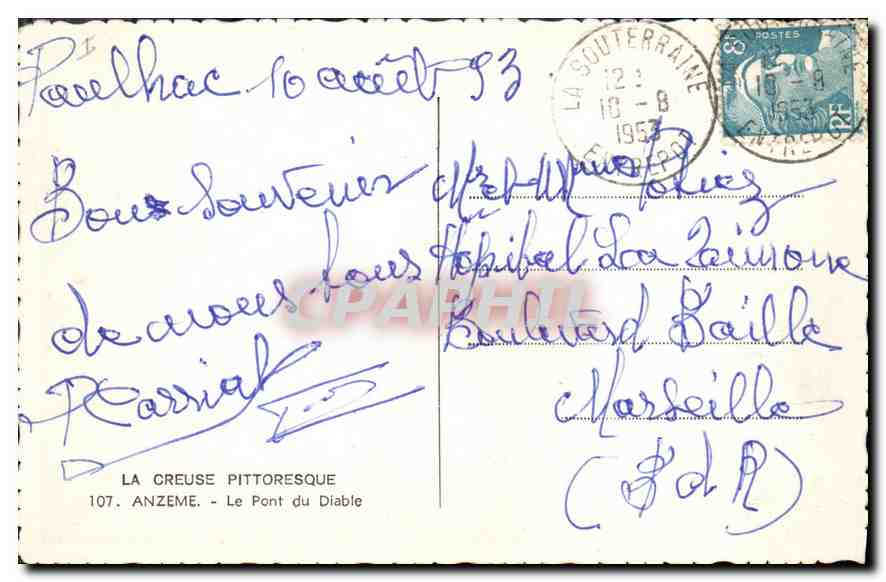 Paulhac 10 août 53
Bons Souvenirs
de nous tous
LA CREUSE PITTORESQUE
107. ANZEME. - Le Pont du Diable
LA SOUTERRAINE
12
10-8
1953
ENTREPOT
8F POSTES
RF
10-8
1953
ENTREPOT
Mr et Mme
Hôpital La Timone
Boulevard Baille
Marseille
(B d R)
CPAPHIL